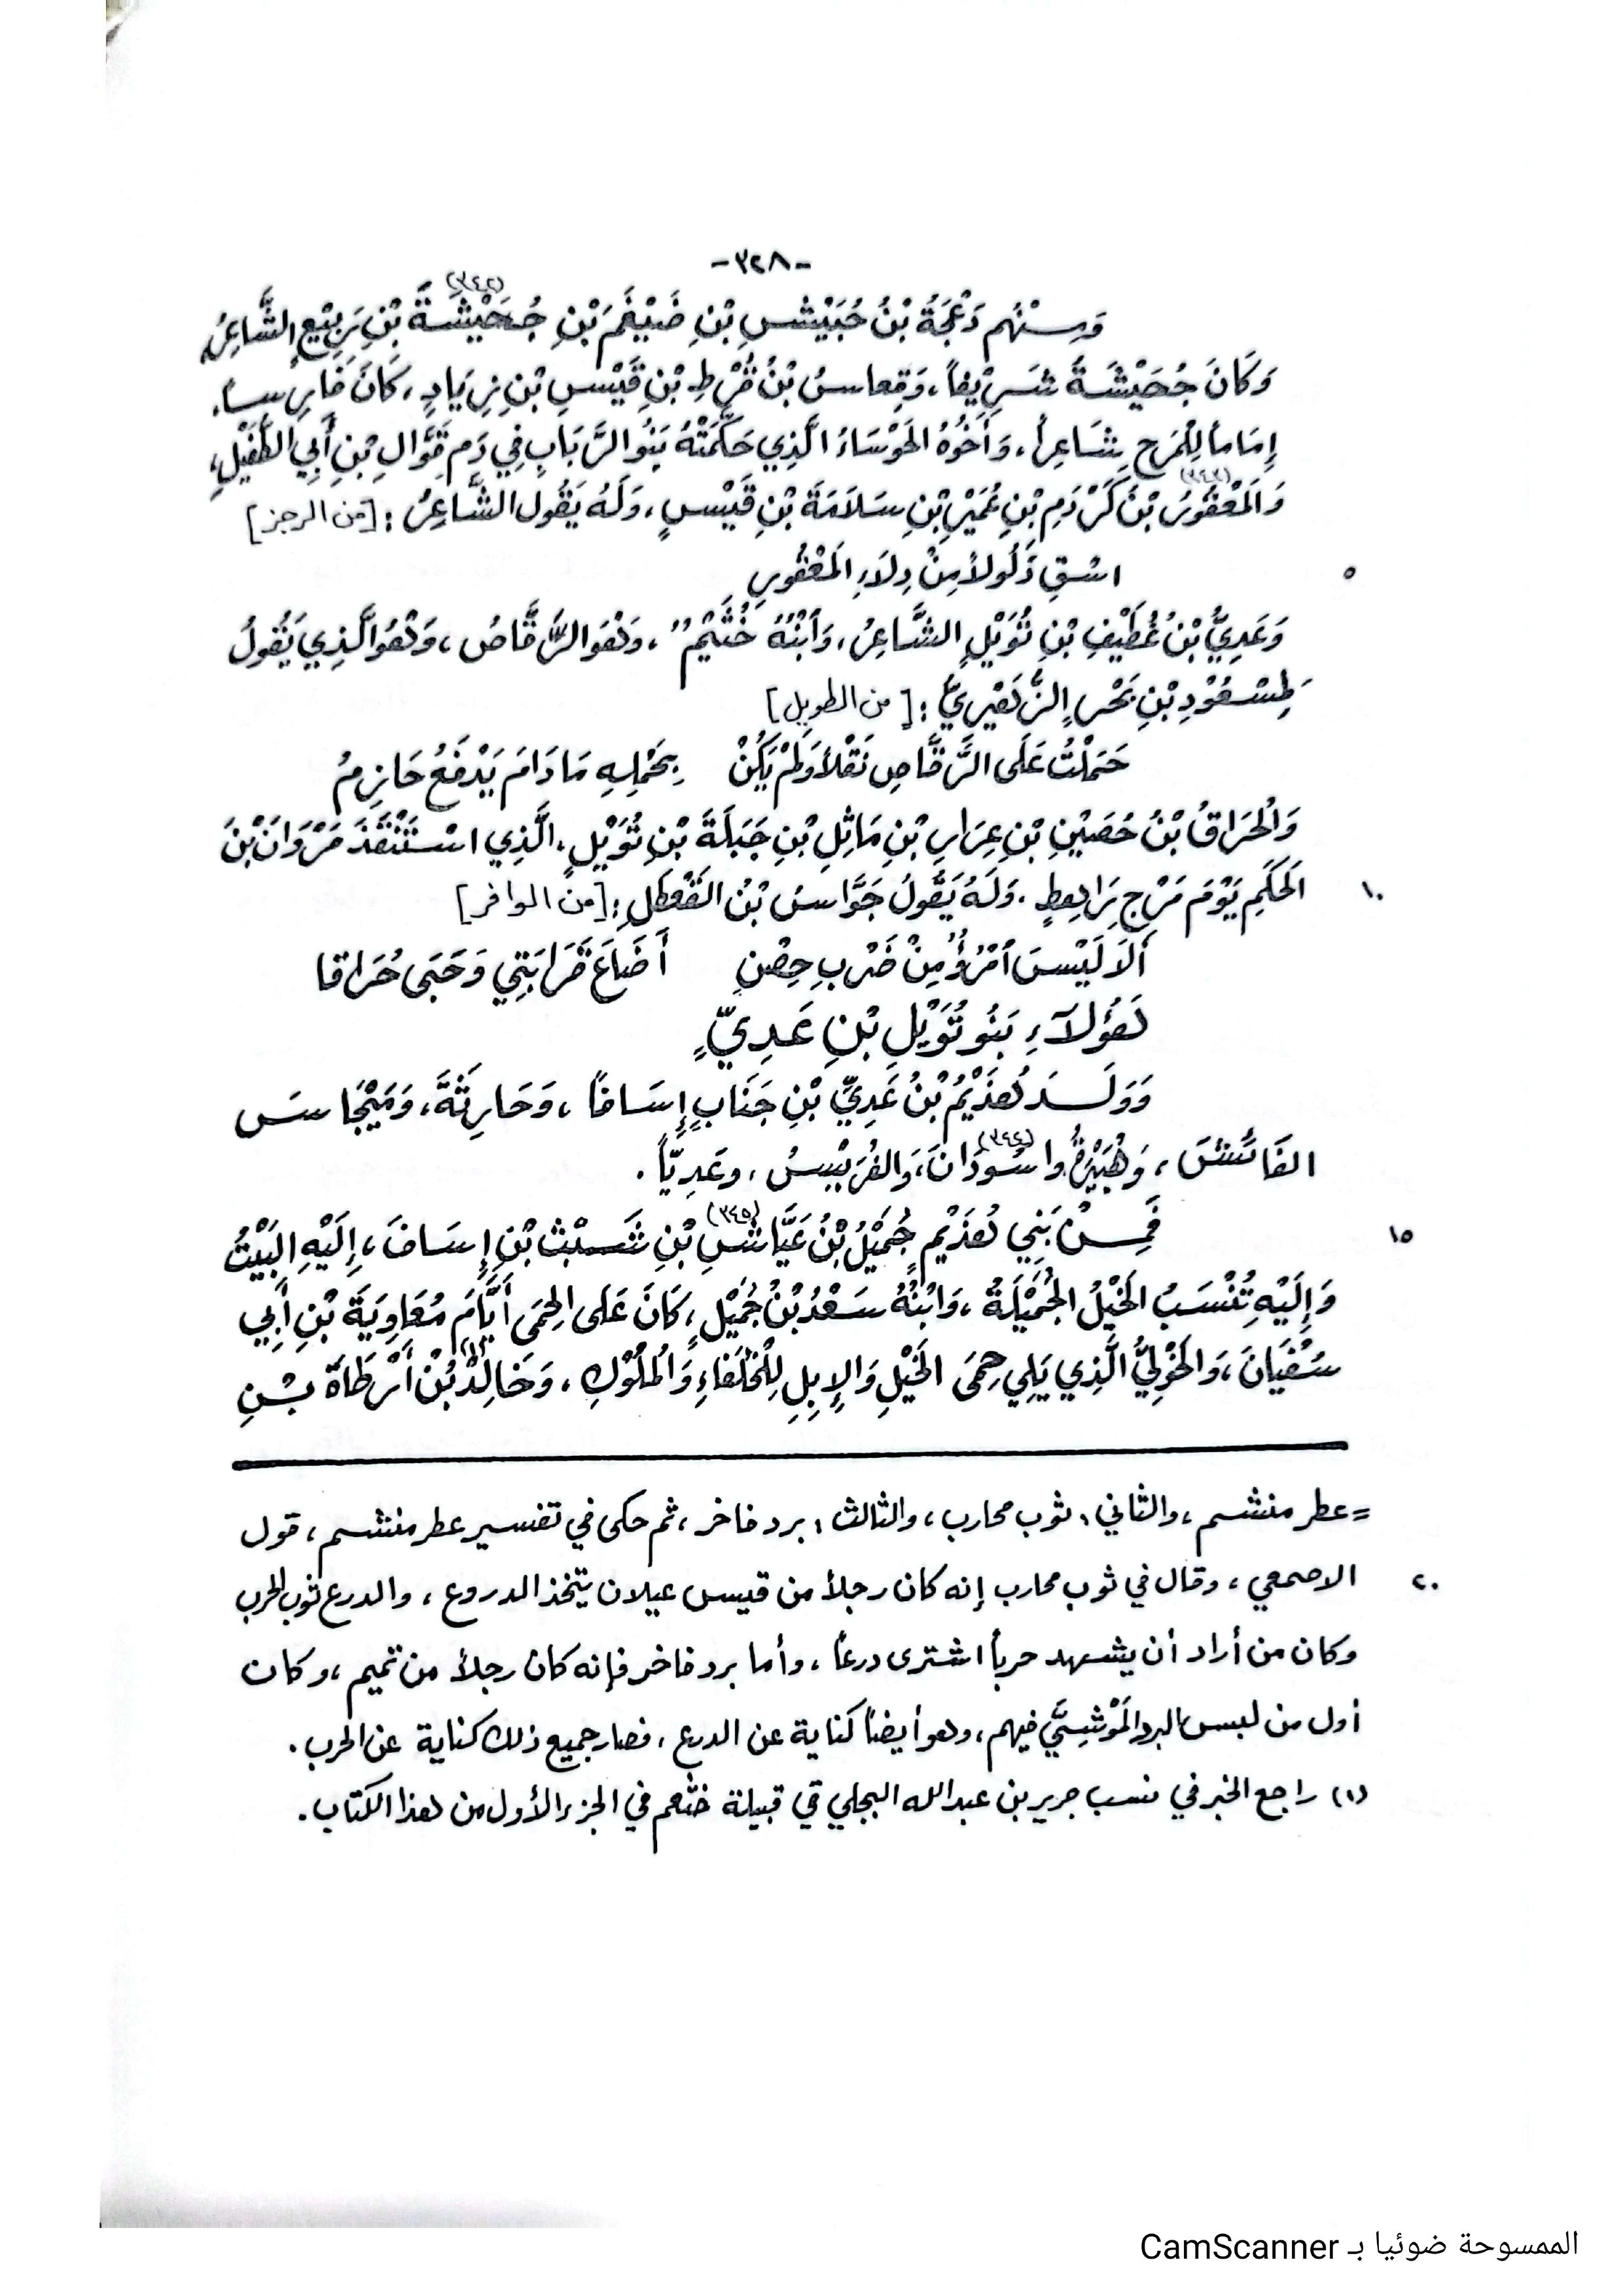 -٣٢٨-
وَمِنْهُم دَعْجَةُ بْنُ حُبَيْشِ بْنِ ضَيْغَمَ بْنِ جُحَيْشَةَ (٣٤٢) بْنِ رَبِيْعٍ الشَّاعِرُ،
وَكَانَ جُحَيْشَةُ شَرِيْفاً، وَقِعاسُ بْنُ قُرْطِ بْنِ قَيْسِ بْنِ زِيَادٍ، كَانَ فَارِساً،
إِمَاماً لِلْمَرْحِ شَاعِراً، وَأَخُوْهُ الحَوْسَاءُ الَّذِي حَكَّمَتْهُ بَنُو الرَّبَابِ فِي دَمِ قَوَّالِ بْنِ أَبِي الطُّفَيْلِ،
وَالمَعْقُوْرُ (٣٤٣) بْنُ كَرْدَمِ بْنِ عُمَيْرِ بْنِ سَلاَمَةَ بْنِ قَيْسٍ، وَلَهُ يَقُولُ الشَّاعِرُ: [من الرجز]
٥ اسْقِ ذَلُولاً مِنْ دِلاَءِ المَعْقُورِ
وَعَدِيُّ بْنُ غُطَيْفِ بْنِ تُوَيْلٍ الشَّاعِرُ، وَٱبْنُهُ خُثَيْمٌ، وَهْوَ الرَّقَّاصُ، وَهْوَ الَّذِي يَقُولُ
لِمَسْعُوْدِ بْنِ بَحْرٍ الزُّهَيْرِيِّ: [من الطويل]
حَمَلْتُ عَلَى الرَّقَّاصِ ثَقْلاً وَلَمْ يَكُنْ بِحَمْلِهِ مَا دَامَ يَدْفَعُ حَازِمُ
وَالْحَرَاقُ بْنُ حُصَيْنِ بْنِ عِرَارِ بْنِ مَاثِلِ بْنِ جَبَلَةَ بْنِ تُوَيْلٍ، الَّذِي اسْتَنْقَذَ مَرْوَانَ بْنَ
١٠ الحَكَمِ يَوْمَ مَرْجِ رَاهِطٍ. وَلَهُ يَقُولُ جَوَّاسُ بْنُ القَعْطَلِ: [من الوافر]
أَلاَ لَيْسَ ٱمْرُؤٌ مِنْ ضَرْبِ حِصْنٍ أَضَاعَ قَرَابَتِي وَحَبَى حُرَاقا
هَؤُلآءِ بَنُو تُوَيْلِ بْنِ عَدِيٍّ
وَوَلَـدَ هُذَيْمُ بْنُ عَدِيِّ بْنِ جَنَابٍ إِسَافاً، وَحَارِثَةَ، وَمَيْجَاسَ
الفَائِشَ، وَهُبَيْرَةَ وَاسُودَانَ (٣٤٤)، وَالفُرَيْسُ، وعَدِيّاً.
١٥ فَمِـنْ بَنِي هُذَيْمٍ جُمَيْلُ بْنُ عَيَّاشِ (٣٤٥) بْنِ شَبْثِ بْنِ إِسَافَ، إِلَيْهِ البَيْتُ
وَإِلَيْهِ تُنْسَبُ الخَيْلُ الجُمَيْلَةُ، وَابْنُهُ سَعْدُ بْنُ جُمَيْلٍ، كَانَ عَلَى الحِمَى أَيَّامَ مُعَاوِيَةَ بْنِ أَبِي
سُفْيَانَ، وَالخَوْلِيُّ الَّذِي يَلِي حِمَى الخَيْلِ وَالإِبِلِ لِلْخُلَفَاءِ وَالْمُلُوْكِ، وَخَالِدُ (١) بْنُ أَرْطَاةَ بْنِ
= عطر منشم، والثاني: ثوب محارب، والثالث: برد فاخر، ثم حكى في تفسير عطر منشم، قول
٢٠ الاصمعي، وقال في ثوب محارب إنه كان رجلاً من قيس عيلان يتخذ الدروع، والدرع ثوب الحرب
وكان من أراد أن يشهد حرباً اشترى درعاً، وأما برد فاخر فإنه كان رجلاً من تميم، وكان
أول من لبس البرد المَوْشِيَّ فيهم، وهو أيضاً كناية عن الدرع، فصار جميع ذلك كناية عن الحرب.
(١) راجع الخبر في نسب جرير بن عبد الله البجلي في قبيلة خثعم في الجزء الأول من هذا الكتاب.
الممسوحة ضوئيا بـ CamScanner